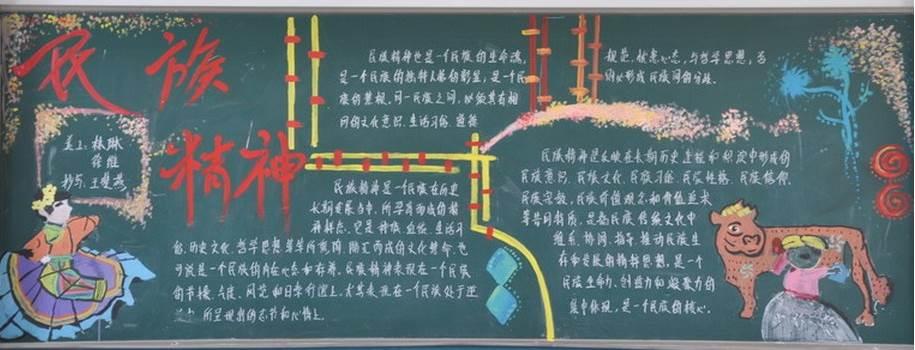 民族
精神
美工: 林琳
抄写: 王斐燕
民族精神也是一个民族的生命魂,
是一个民族的独特人格的彰显, 是一个民
族的整机. 同一民族之间, 以须其有相
同的文化意识. 生活习俗. 道德
规范, 被害心态, 与哲学思想, 否
则必形成民族间的分歧.
民族精神是一个民族在历史
长期发展当中, 所孕育而成的精
神样态. 它是种族. 血统. 生活习
俗. 历史文化. 哲学思想等等所熏陶. 融汇而成的文化慧命. 也
可说是一个民族的内在心态和存养. 民族精神表现在一个民族
的节操. 气度. 风范和日常行谊上. 尤其表现在一个民族处于逆
所呈现出的志节和心情上.
民族精神是反映在长期历史进程和积淀中形成的
民族意识. 民族文化. 民族习俗. 民族性格. 民族信仰.
民族宗教. 民族价值观念和价值追求
等共同特质, 是指民族传统文化中
维系. 协调. 指导. 推动民族生
存和发展的精粹思想, 是一个
民族生命力. 创造力和凝聚力的
集中体现, 是一个民族的核心.